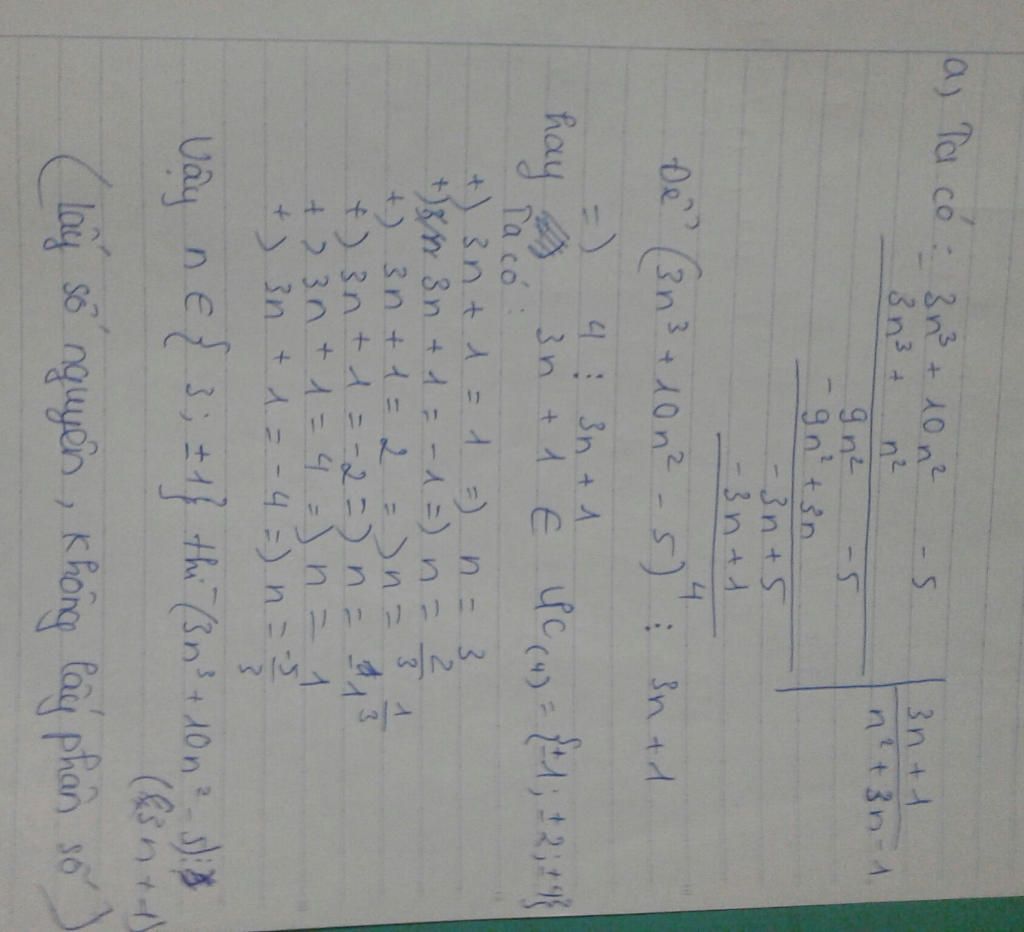 a) Ta có: 3n³ + 10n² - 5 | 3n + 1
- 3n³ + n² | n² + 3n - 1
9n² - 5
- 9n² + 3n
- 3n + 5
- 3n + 1
4
Để (3n³ + 10n² - 5) ⋮ 3n + 1
=) 4 ⋮ 3n + 1
hay 3n + 1 ∈ ƯC(4) = {±1; ±2; ±4}
Ta có:
+) 3n + 1 = 1 =) n = 3
+) 3n + 1 = -1 =) n = 2/3
+) 3n + 1 = 2 =) n = 1/3
+) 3n + 1 = -2 =) n = -1
+) 3n + 1 = 4 =) n = 1
+) 3n + 1 = -4 =) n = -5/3
Vậy n ∈ { 3; ±1} thì (3n³ + 10n² - 5) ⋮
(3n + 1)
(lấy số nguyên, không lấy phân số)